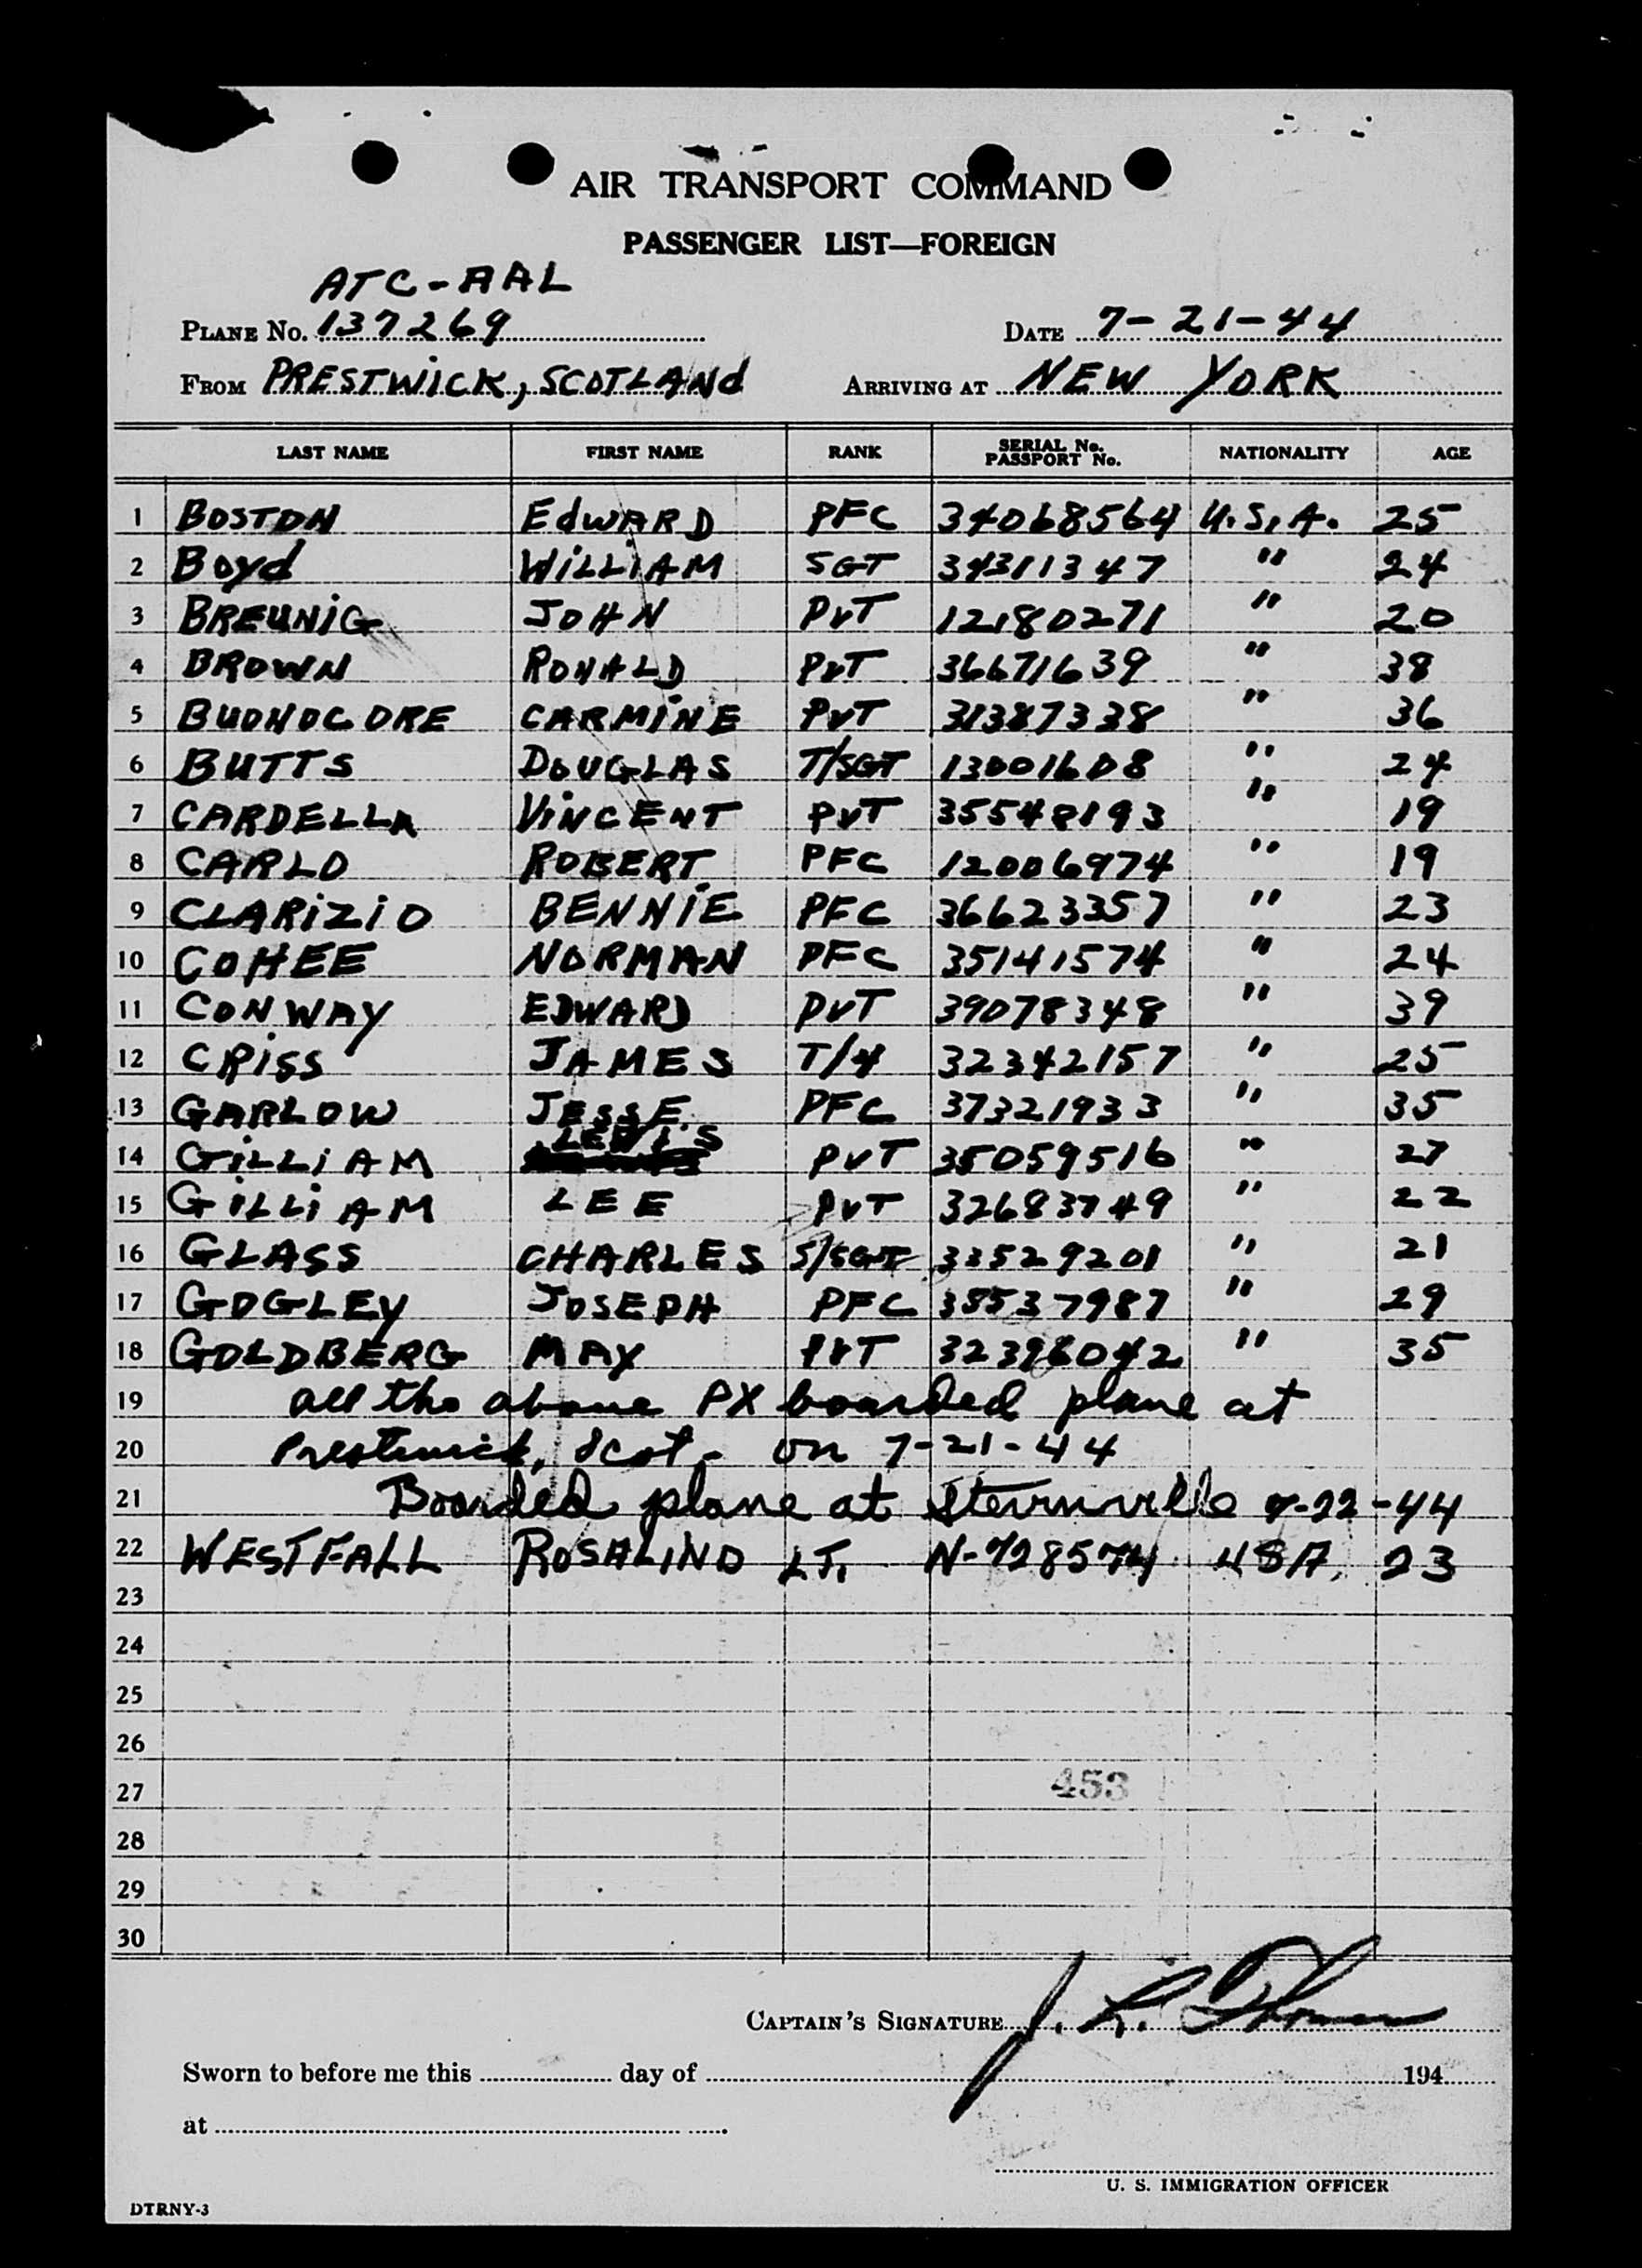 AIR TRANSPORT COMMAND
PASSENGER LIST—FOREIGN
ATC-AAL
PLANE No. 137269 DATE 7-21-44
FROM PRESTWICK, SCOTLANd ARRIVING AT NEW YORK
LAST NAME FIRST NAME RANK SERIAL No. PASSPORT No. NATIONALITY AGE
1 BOSTON EdWARD PFC 34068564 U.S.A. 25
2 Boyd WiLLiAM SGT 34311347 " 24
3 BREUNiG JOHN PvT 12180271 " 20
4 BROWN RONALD PvT 36671639 " 38
5 BUONOCORE CARMiNE PvT 31387338 " 36
6 BUTTS DOUGLAS T/SGT 13001608 " 24
7 CARDELLA ViNCENT PvT 35548193 " 19
8 CARLO ROBERT PFC 12006974 " 19
9 CLARiZiO BENNiE PFC 36623357 " 23
10 COHEE NORMAN PFC 35141574 " 24
11 CONWAY EDWARD PvT 39078348 " 39
12 CRiSS JAMES T/4 32342157 " 25
13 GARLOW JESSE PFC 37321933 " 35
14 GiLLiAM LEWIS PvT 35059516 " 27
15 GiLLiAM LEE PvT 32683749 " 22
16 GLASS CHARLES S/SGT 33529201 " 21
17 GOGLEY JOSEPH PFC 35537987 " 29
18 GOLDBERG MAX PvT 32396042 " 35
19 all the above PX boarded plane at
20 Prestwick, Scot. on 7-21-44
21 Boarded plane at 7-22-44
22 WESTFALL ROSALIND LT. N-728574 USA. 23
23
24
25
26
27 453
28
29
30
CAPTAIN'S SIGNATURE J. L.
Sworn to before me this day of 194
at
U. S. IMMIGRATION OFFICER
DTRNY-3